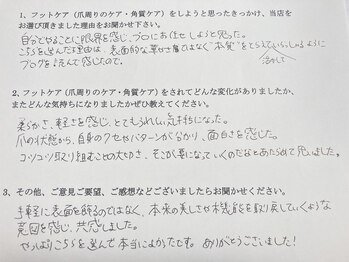 1、フットケア（爪周りのケア・角質ケア）をしようと思ったきっかけ、当店を
お選び頂きました理由をお聞かせ下さい。
自分でやることに限界を感じ、プロにお任せしようと思った。
こちらを選んだ理由は、表面的な華やかさではなく"本質"をとらえていらっしゃるように
ブログを読んで感じたので。
2、フットケア（爪周りのケア・角質ケア）をされてどんな変化がありましたか、
またどんな気持ちになりましたかぜひ教えてください。
柔らかさ、軽さを感じ、とてもうれしい気持ちになった。
爪の状態から、自身のクセやパターンが分かり、面白さを感じた。
コツコツ取り組むことの大切さ、そこが要になっていくのだなとあらためて思いました。
3、その他、ご意見ご要望、ご感想などございましたらお聞かせください。
手軽に表面を飾るのではなく、本来の美しさや機能を取り戻していくような
意図を感じ、共感しました。
やっぱりこちらを選んで本当によかったです。ありがとうございました！